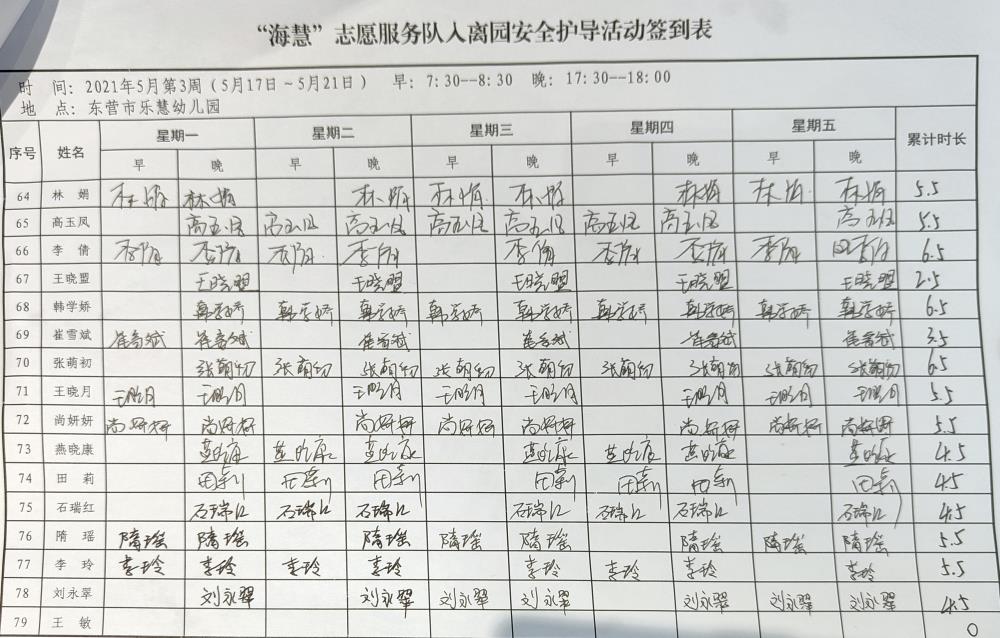 “海慧”志愿服务队入离园安全护导活动签到表
时 间：2021年5月第3周（5月17日～5月21日） 早：7:30--8:30 晚：17:30--18:00
地 点：东营市乐慧幼儿园
序号 姓名 星期一 星期二 星期三 星期四 星期五 累计时长
早 晚 早 晚 早 晚 早 晚 早 晚
64 林 娟 林娟 林娟 林娟 林娟 林娟 林娟 林娟 林娟 5.5
65 高玉凤 高玉凤 高玉凤 高玉凤 高玉凤 高玉凤 高玉凤 高玉凤 高玉凤 5.5
66 李 倩 李倩 李倩 李倩 李倩 李倩 李倩 李倩 李倩 李倩 6.5
67 王晓盟 王晓盟 王晓盟 王晓盟 王晓盟 王晓盟 2.5
68 韩学娇 韩学娇 韩学娇 韩学娇 韩学娇 韩学娇 韩学娇 韩学娇 韩学娇 韩学娇 6.5
69 崔雪斌 崔雪斌 崔雪斌 崔雪斌 崔雪斌 崔雪斌 崔雪斌 3.5
70 张萌初 张萌初 张萌初 张萌初 张萌初 张萌初 张萌初 张萌初 张萌初 张萌初 6.5
71 王晓月 王晓月 王晓月 王晓月 王晓月 王晓月 王晓月 王晓月 王晓月 5.5
72 尚妍妍 尚妍妍 尚妍妍 尚妍妍 尚妍妍 尚妍妍 尚妍妍 尚妍妍 尚妍妍 5.5
73 燕晓康 燕晓康 燕晓康 燕晓康 燕晓康 燕晓康 燕晓康 燕晓康 4.5
74 田 莉 田莉 田莉 田莉 田莉 田莉 田莉 田莉 4.5
75 石瑞红 石瑞红 石瑞红 石瑞红 石瑞红 石瑞红 石瑞红 石瑞红 4.5
76 隋 瑶 隋瑶 隋瑶 隋瑶 隋瑶 隋瑶 隋瑶 隋瑶 隋瑶 5.5
77 李 玲 李玲 李玲 李玲 李玲 李玲 李玲 李玲 李玲 5.5
78 刘永翠 刘永翠 刘永翠 刘永翠 刘永翠 刘永翠 刘永翠 刘永翠 4.5
79 王 敏 0